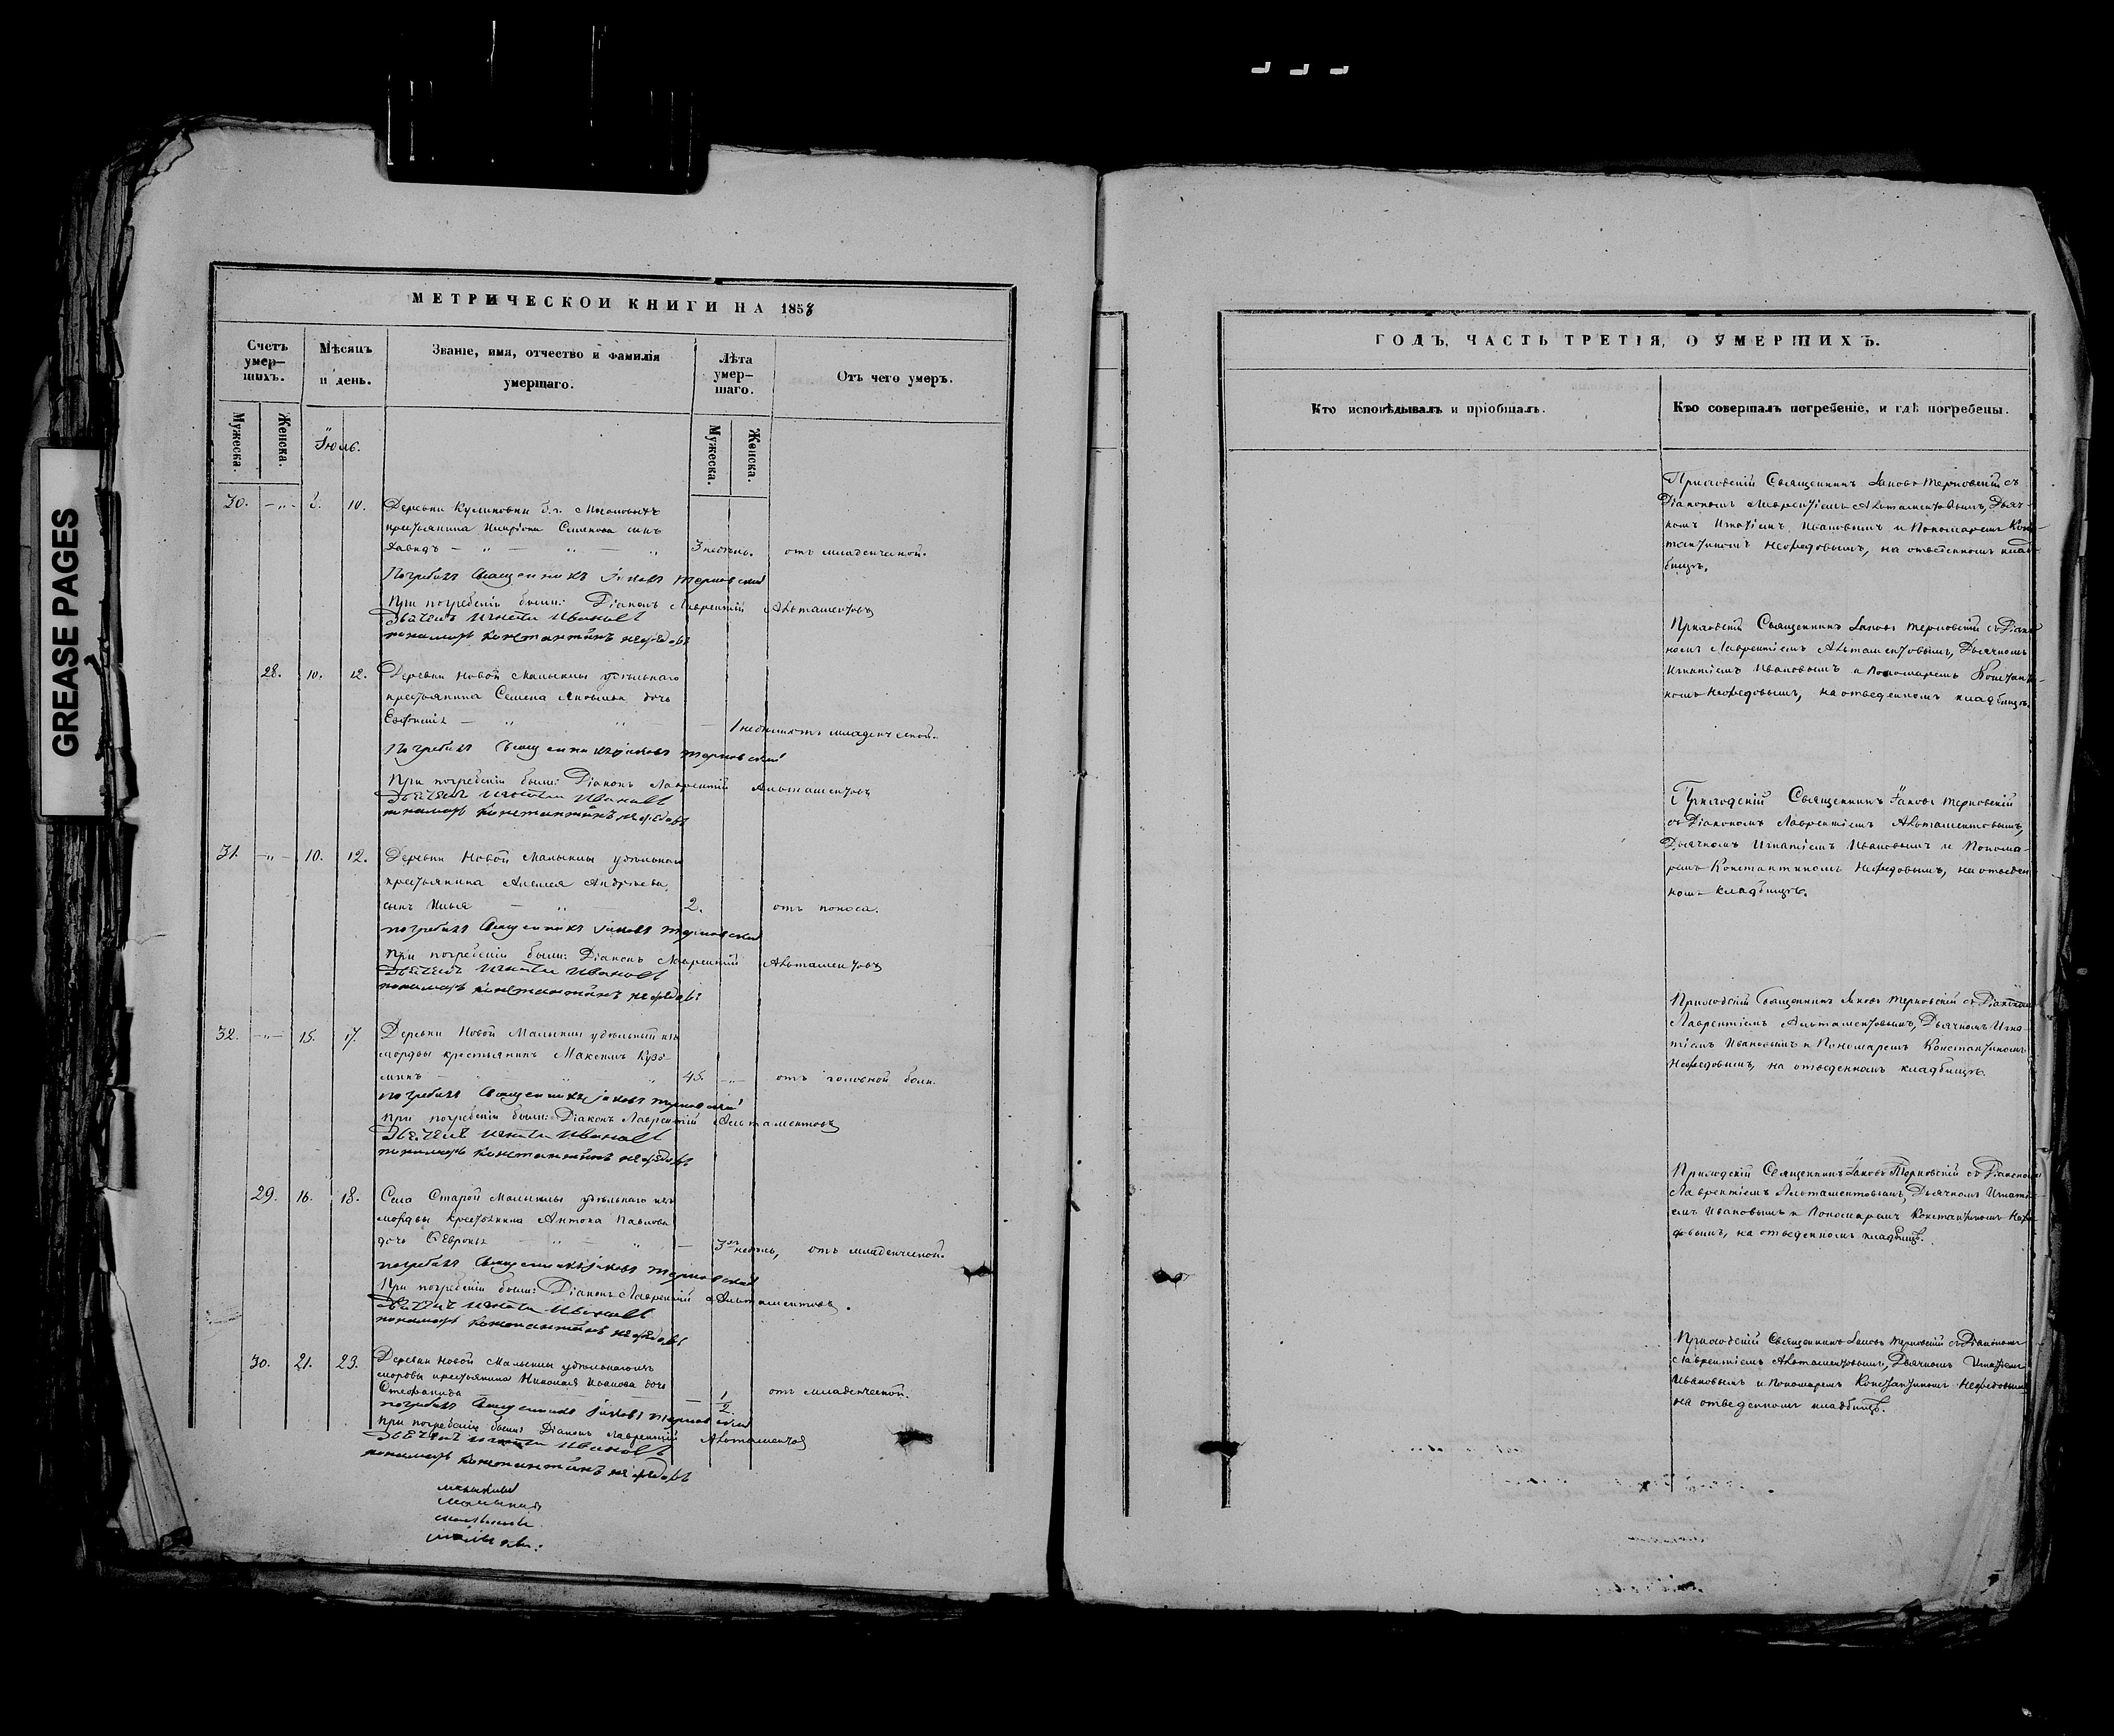 GREASE PAGES
МЕТРИЧЕСКОЙ КНИГИ НА 1858
Счетъ умер-шихъ.
Мѣсяцъ и день.
Званіе, имя, отчество и фамилія умершаго.
Лѣта умер-шаго.
Отъ чего умеръ.
Мужеска.
Женска.
Мужеска.
Женска.
Іюль.
30. 8. 10. Деревни Куликовки
крестьянина Семенова сынъ
Давидъ 3 недѣль. отъ младенческой.
Погребалъ Священникъ Іаковъ Терновскій
При погребеніи были: Діаконъ Лаврентій Альтаментовъ
Дьячекъ Игнатій Ивановъ
пономарь Константинъ Нефедовъ
28. 10. 12. Деревни Новой Малыклы удѣльнаго
крестьянина Семена дочь
Евфимія 1 недѣли отъ младенческой.
Погребалъ Священникъ Іаковъ Терновскій
При погребеніи были: Діаконъ Лаврентій Альтаментовъ
Дьячекъ Игнатій Ивановъ
пономарь Константинъ Нефедовъ
31. 10. 12. Деревни Новой Малыклы удѣльнаго
крестьянина Алексея Андреева
сынъ Илья 2. отъ поноса.
погребалъ Священникъ Іаковъ Терновскій
При погребеніи были: Діаконъ Лаврентій Альтаментовъ
Дьячекъ Игнатій Ивановъ
пономарь Константинъ Нефедовъ
32. 15. 17. Деревни Новой Малыклы удѣльный изъ
мордвы крестьянинъ Максимъ Кузь-
минъ 45. отъ головной боли.
погребалъ Священникъ Іаковъ Терновскій
При погребеніи были: Діаконъ Лаврентій Альтаментовъ
Дьячекъ Игнатій Ивановъ
пономарь Константинъ Нефедовъ
29. 16. 18. Села Старой Малыклы удѣльнаго изъ
мордвы крестьянина Антона Павлова
дочь 3 недѣль, отъ младенческой.
погребалъ Священникъ Іаковъ Терновскій
При погребеніи были: Діаконъ Лаврентій Альтаментовъ.
Дьячекъ Игнатій Ивановъ
пономарь Константинъ Нефедовъ
30. 21. 23. Деревни Новой Малыклы удѣльнаго изъ
мордвы крестьянина Николая Иванова дочь
Стефанида 1/2. отъ младенческой.
погребалъ Священникъ Іаковъ Терновскій
При погребеніи были: Діаконъ Лаврентій Альтаментовъ
Дьячекъ Игнатій Ивановъ
пономарь Константинъ Нефедовъ
ГОДЪ, ЧАСТЬ ТРЕТІЯ, О УМЕРШИХЪ.
Кто исповѣдывалъ и пріобщалъ.
Кто совершалъ погребеніе, и гдѣ погребены.
Приходскій Священникъ Іаковъ Терновскій съ
Діакономъ Лаврентіемъ Альтаментовымъ, Дьяч-
комъ Игнатіемъ Ивановымъ и Пономаремъ Конс-
тантиномъ Нефедовымъ, на отведенномъ клад-
бищѣ.
Приходскій Священникъ Іаковъ Терновскій съ Діако-
номъ Лаврентіемъ Альтаментовымъ, Дьячкомъ
Игнатіемъ Ивановымъ и Пономаремъ Констант-
номъ Нефедовымъ, на отведенномъ кладбищѣ.
Приходскій Священникъ Іаковъ Терновскій
съ Діакономъ Лаврентіемъ Альтаментовымъ,
Дьячкомъ Игнатіемъ Ивановымъ и Понома-
ремъ Константиномъ Нефедовымъ, на отведен-
номъ кладбищѣ.
Приходскій Священникъ Іаковъ Терновскій съ Діакономъ
Лаврентіемъ Альтаментовымъ, Дьячкомъ Игна-
тіемъ Ивановымъ и Пономаремъ Константиномъ
Нефедовымъ, на отведенномъ кладбищѣ.
Приходскій Священникъ Іаковъ Терновскій съ Діакономъ
Лаврентіемъ Альтаментовымъ, Дьячкомъ Игнаті-
емъ Ивановымъ и Пономаремъ Константиномъ Нефе-
довымъ, на отведенномъ кладбищѣ.
Приходскій Священникъ Іаковъ Терновскій съ Діакономъ
Лаврентіемъ Альтаментовымъ, Дьячкомъ Игнатіемъ
Ивановымъ и Пономаремъ Константиномъ Нефедовымъ
на отведенномъ кладбищѣ.